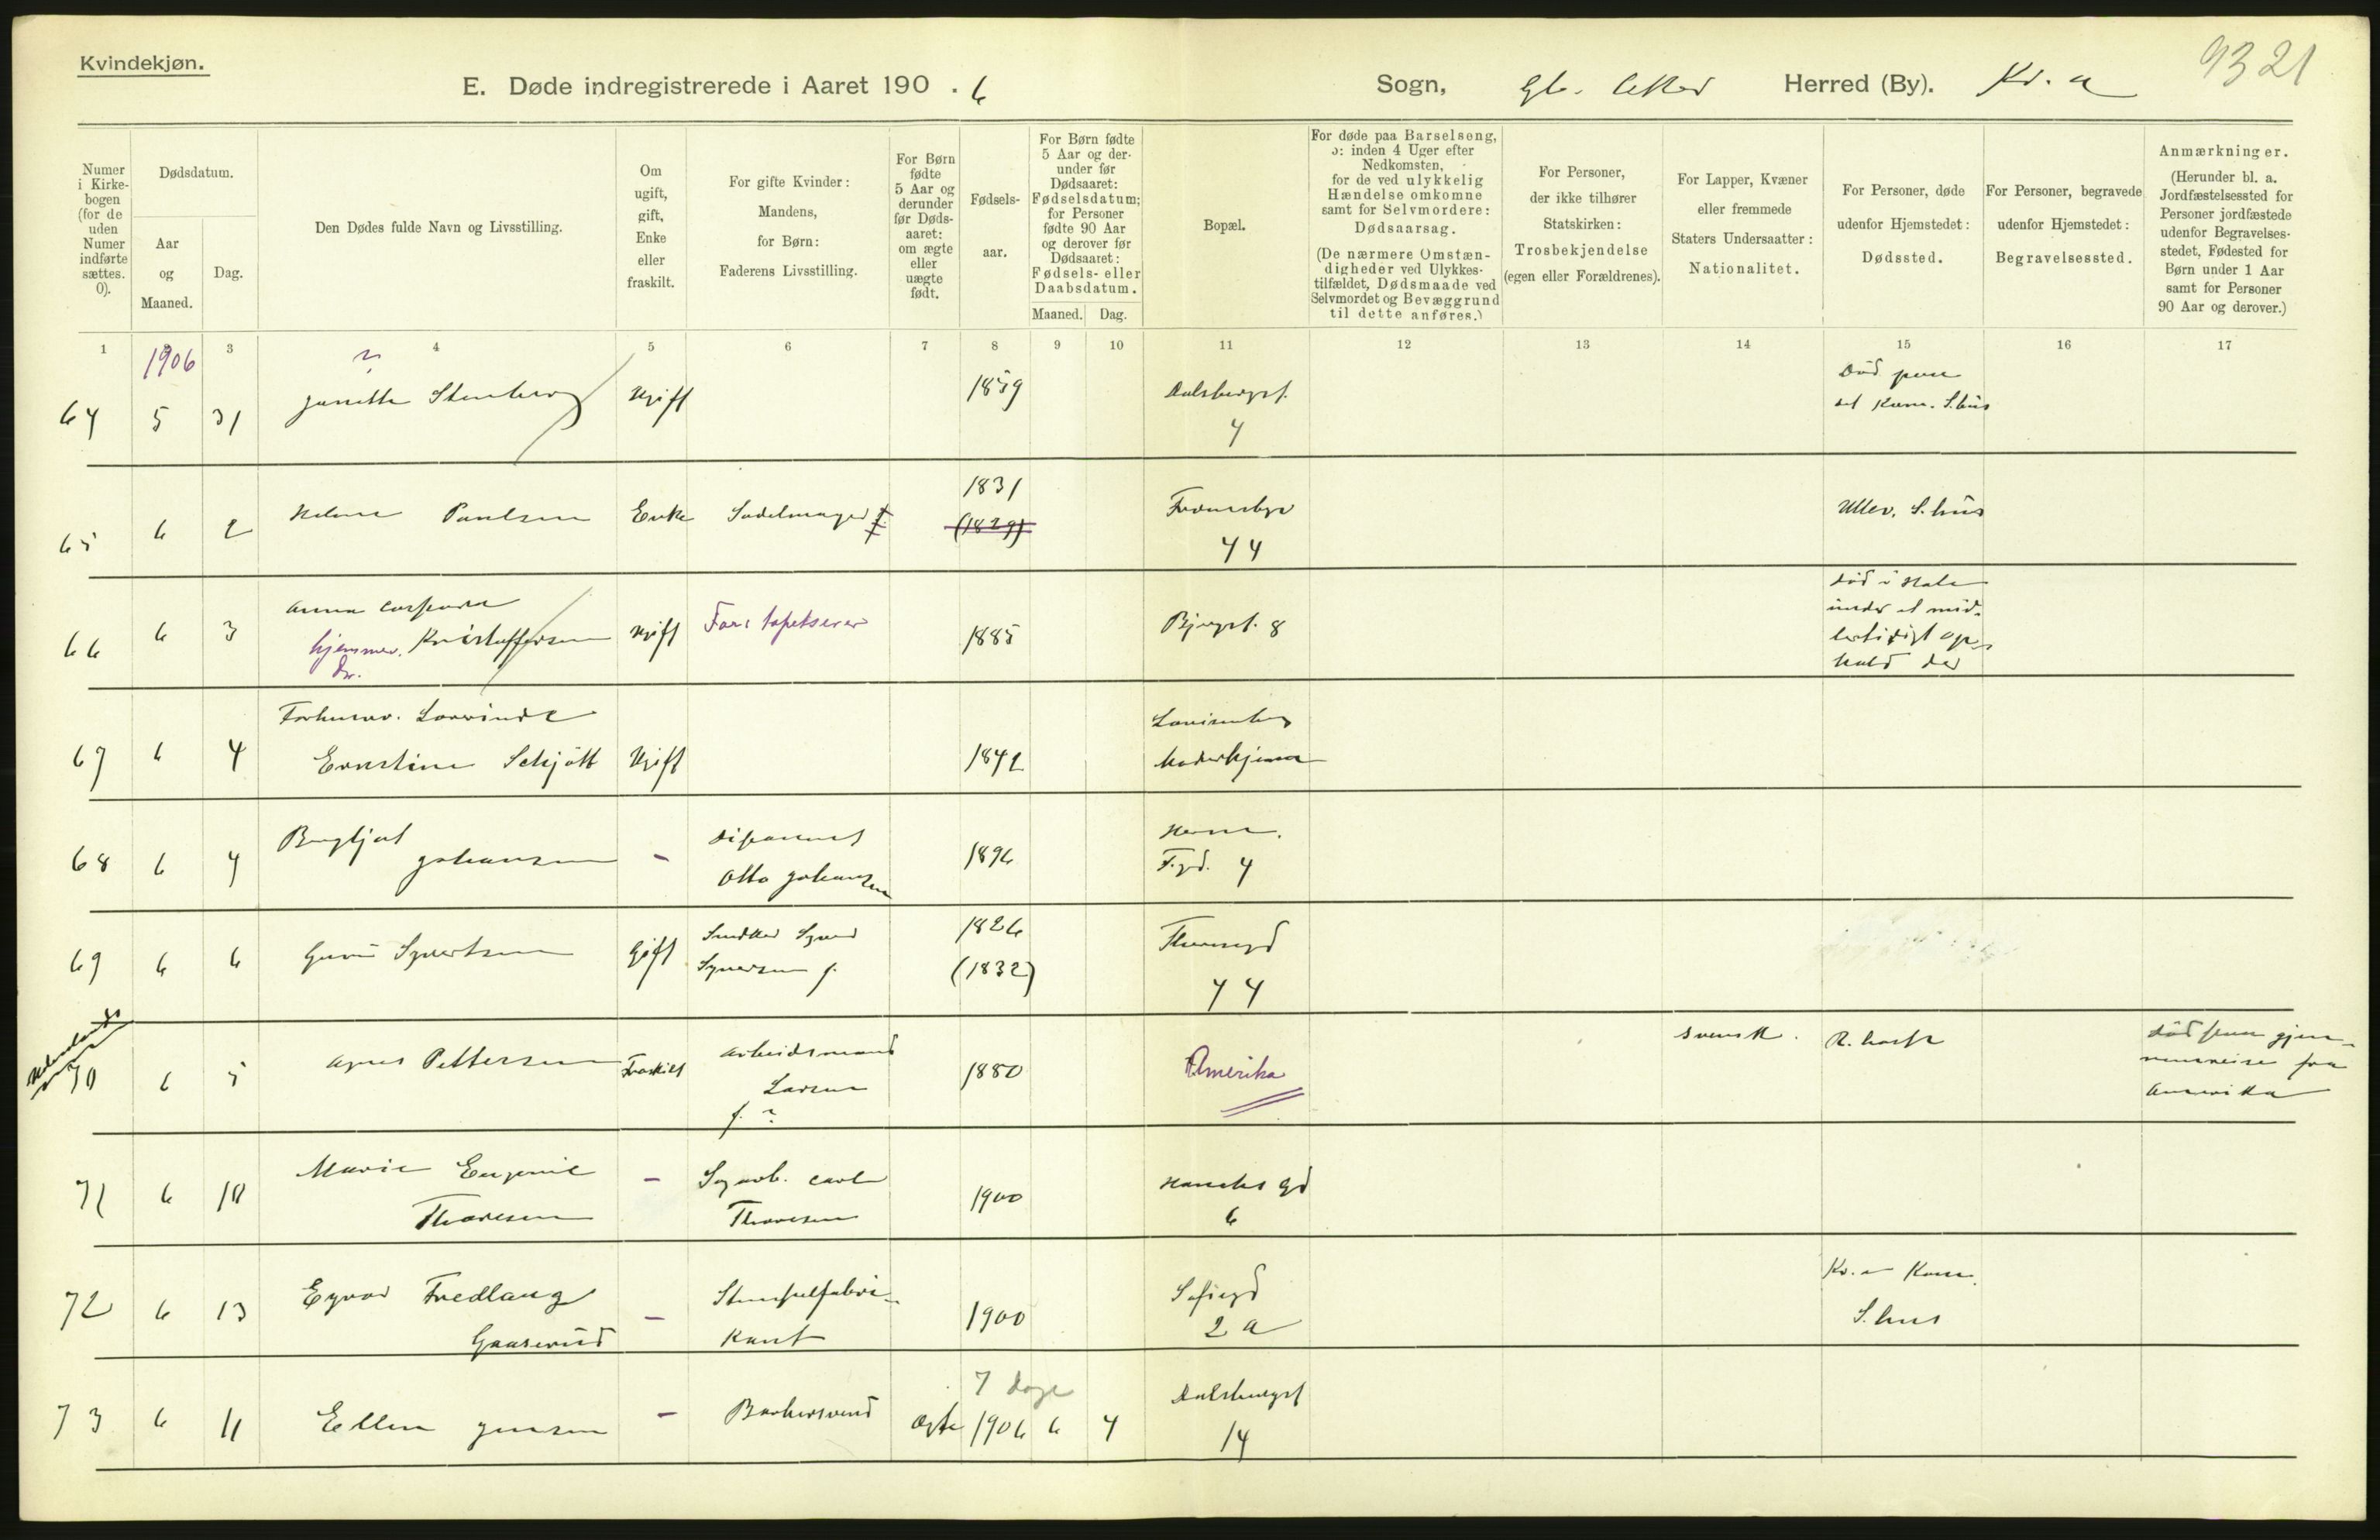 Kvindekjøn.
9321
E. Døde indregistrerede i Aaret 190 . 6
Sogn, Gl. Aker Herred (By). Kr. a
Numer
i Kirke-
bogen
(for de
uden
Numer
indførte
sættes.
0).
Dødsdatum.
Aar
og
Maaned.
Dag.
Den Dødes fulde Navn og Livsstilling.
Om
ugift,
gift,
Enke
eller
fraskilt.
For gifte Kvinder:
Mandens,
for Børn:
Faderens Livsstilling.
For Børn
fødte
5 Aar og
derunder
før Døds-
aaret:
om ægte
eller
uægte
født.
Fødsels-
aar.
For Børn fødte
5 Aar og der-
under før
Dødsaaret:
Fødselsdatum;
for Personer
fødte 90 Aar
og derover før
Dødsaaret:
Fødsels- eller
Daabsdatum.
Maaned. Dag.
Bopæl.
For døde paa Barselseng,
ɔ: inden 4 Uger efter
Nedkomsten,
for de ved ulykkelig
Hændelse omkomne
samt for Selvmordere:
Dødsaarsag.
(De nærmere Omstæn-
digheder ved Ulykkes-
tilfældet, Dødsmaade ved
Selvmordet og Bevæggrund
til dette anføres.)
For Personer,
der ikke tilhører
Statskirken:
Trosbekjendelse
(egen eller Forældrenes).
For Lapper, Kvæner
eller fremmede
Staters Undersaatter:
Nationalitet.
For Personer, døde
udenfor Hjemstedet:
Dødssted.
For Personer, begravede
udenfor Hjemstedet:
Begravelsessted.
Anmærkninger.
(Herunder bl. a.
Jordfæstelsessted for
Personer jordfæstede
udenfor Begravelses-
stedet, Fødested for
Børn under 1 Aar
samt for Personer
90 Aar og derover.)
1 3 4 5 6 7 8 9 10 11 12 13 14 15 16 17
1906
?
64 5 31 Janette Stenberg Ugift 1859 Dalsbergst.
4
Død paa
det Kom. S.hus
65 6 2 Helene Paulsen Enke Sadelmager f. 1831
(1829)
Frognerbyv
44
Ullev. S.hus
66 6 3 Anna Caspara
hjemmev. Kristoffersen
Dr.
Ugift Far: tapetserer 1885 Bjergst. 8
død i Hole
under et mid-
lertidigt op-
hold der
67 6 4 Forhenv.
Ernstine Schjøtt Ugift 1842 Louisenberg
68 6 4 Bergljot
Johansen - Disponent
Otto Johansen
1896
F.gd. 4
69 6 6 Gunni Syvertsen Gift Snedker
Syversen f.
1826
(1832)
Theresegd
44
70 6 5 Agnes Pettersen Fraskilt Arbeidsmand
Larsen
f. ?
1880 Amerika svensk. R. hosp.
død paa gjen-
nemreise fra
Amerika
71 6 10 Marie Eugenie
Thoresen - Carl
Thoresen
1900
6
72 6 13 Fredlaug
Gaaserud - Stempelfabri-
kant
1900 Sofiegd
2 a
Kr. a Kom.
S.hus
73 6 11 Ellen Jensen - Barbersvend Ægte 7 dage
1906 6 4 Dalsbergst
14